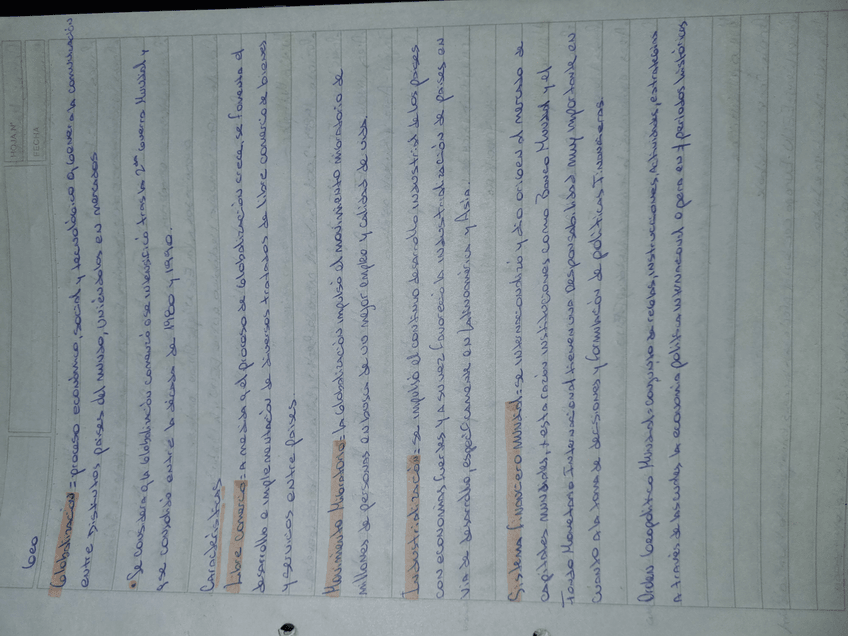 HOJA Nº
FECHA
Geo
Globalización = proceso económico, social y tecnológico q genera la comunicación
entre Distintos países del mundo, uniéndolos en mercados
• Se considera q la Globalización comenzó o se intensificó tras la 2da Guerra Mundial y
q se consolidó entre la década de 1980 y 1990.
Características
Libre comercio = a medida q el proceso de Globalización crece, se fomenta el
desarrollo e implementación de diversos tratados de libre comercio de bienes
y servicios entre países
Movimiento Migratorio = la Globalización impulsó el movimiento migratorio de
millones de personas en busca de un mejor empleo y calidad de vida.
Industrialización = se impulsó el continuo desarrollo industrial de los países
con economías fuertes y a su vez favoreció la industrialización de países en
vía de desarrollo, específicamente en Latinoamérica y Asia.
Sistema financiero mundial = se internacionalizó y dio origen al mercado de
capitales mundiales, x esta razón instituciones como Banco Mundial y el
Fondo Monetario Internacional tienen una Responsabilidad muy importante en
cuanto a la toma de decisiones y formulación de políticas Financieras.
Orden Geopolítico Mundial = conjunto de reglas, instrucciones, Actividades, estrategias
A través de las cuales la economía política internacional opera en ≠ periodos históricos